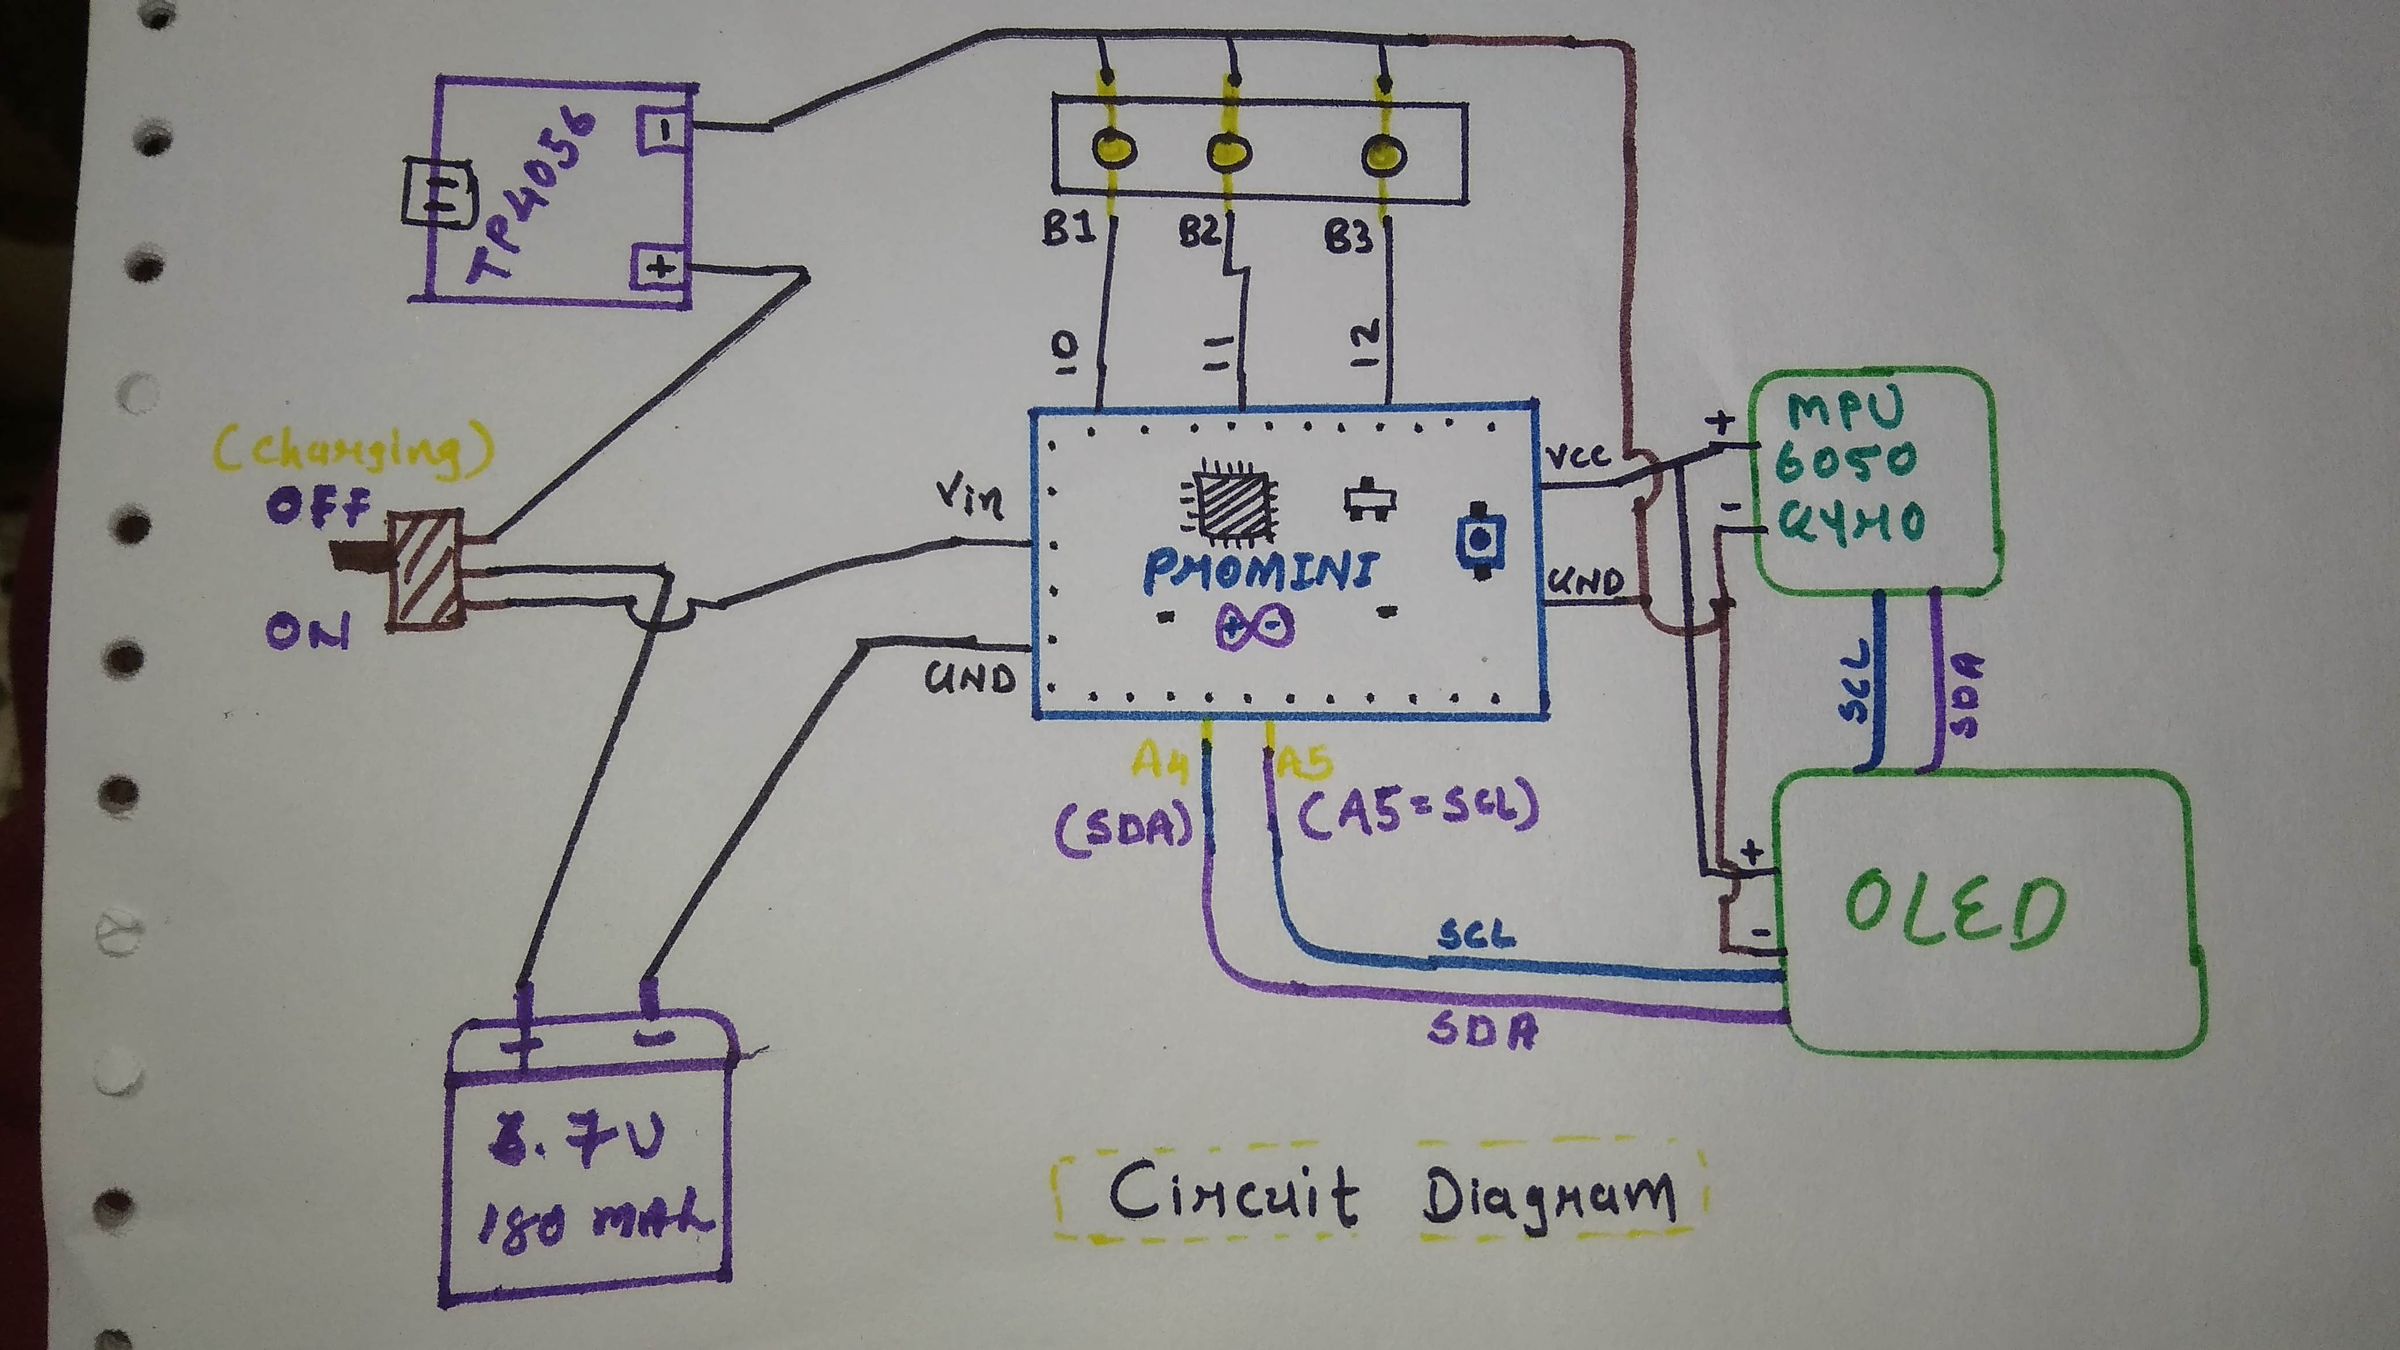 TP4056
-
+
B1 B2 B3
10 11 12
(Charging)
OFF
ON
Vin
GND
VCC
GND
PROMINI
+ -
+
-
MPU
6050
GYRO
SCL
SDA
A4
A5
(SDA)
(A5=SCL)
SCL
SDA
+
-
OLED
+ -
3.7V
180 mAh
Circuit Diagram